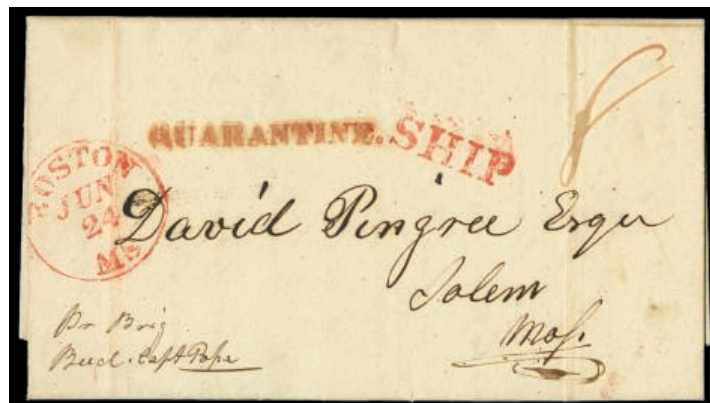 QUARANTINE. SHIP
8
BOSTON
JUN
24
MS
David Pingree Esqr
Salem
Mas.
Pr Brig
Capt Pope